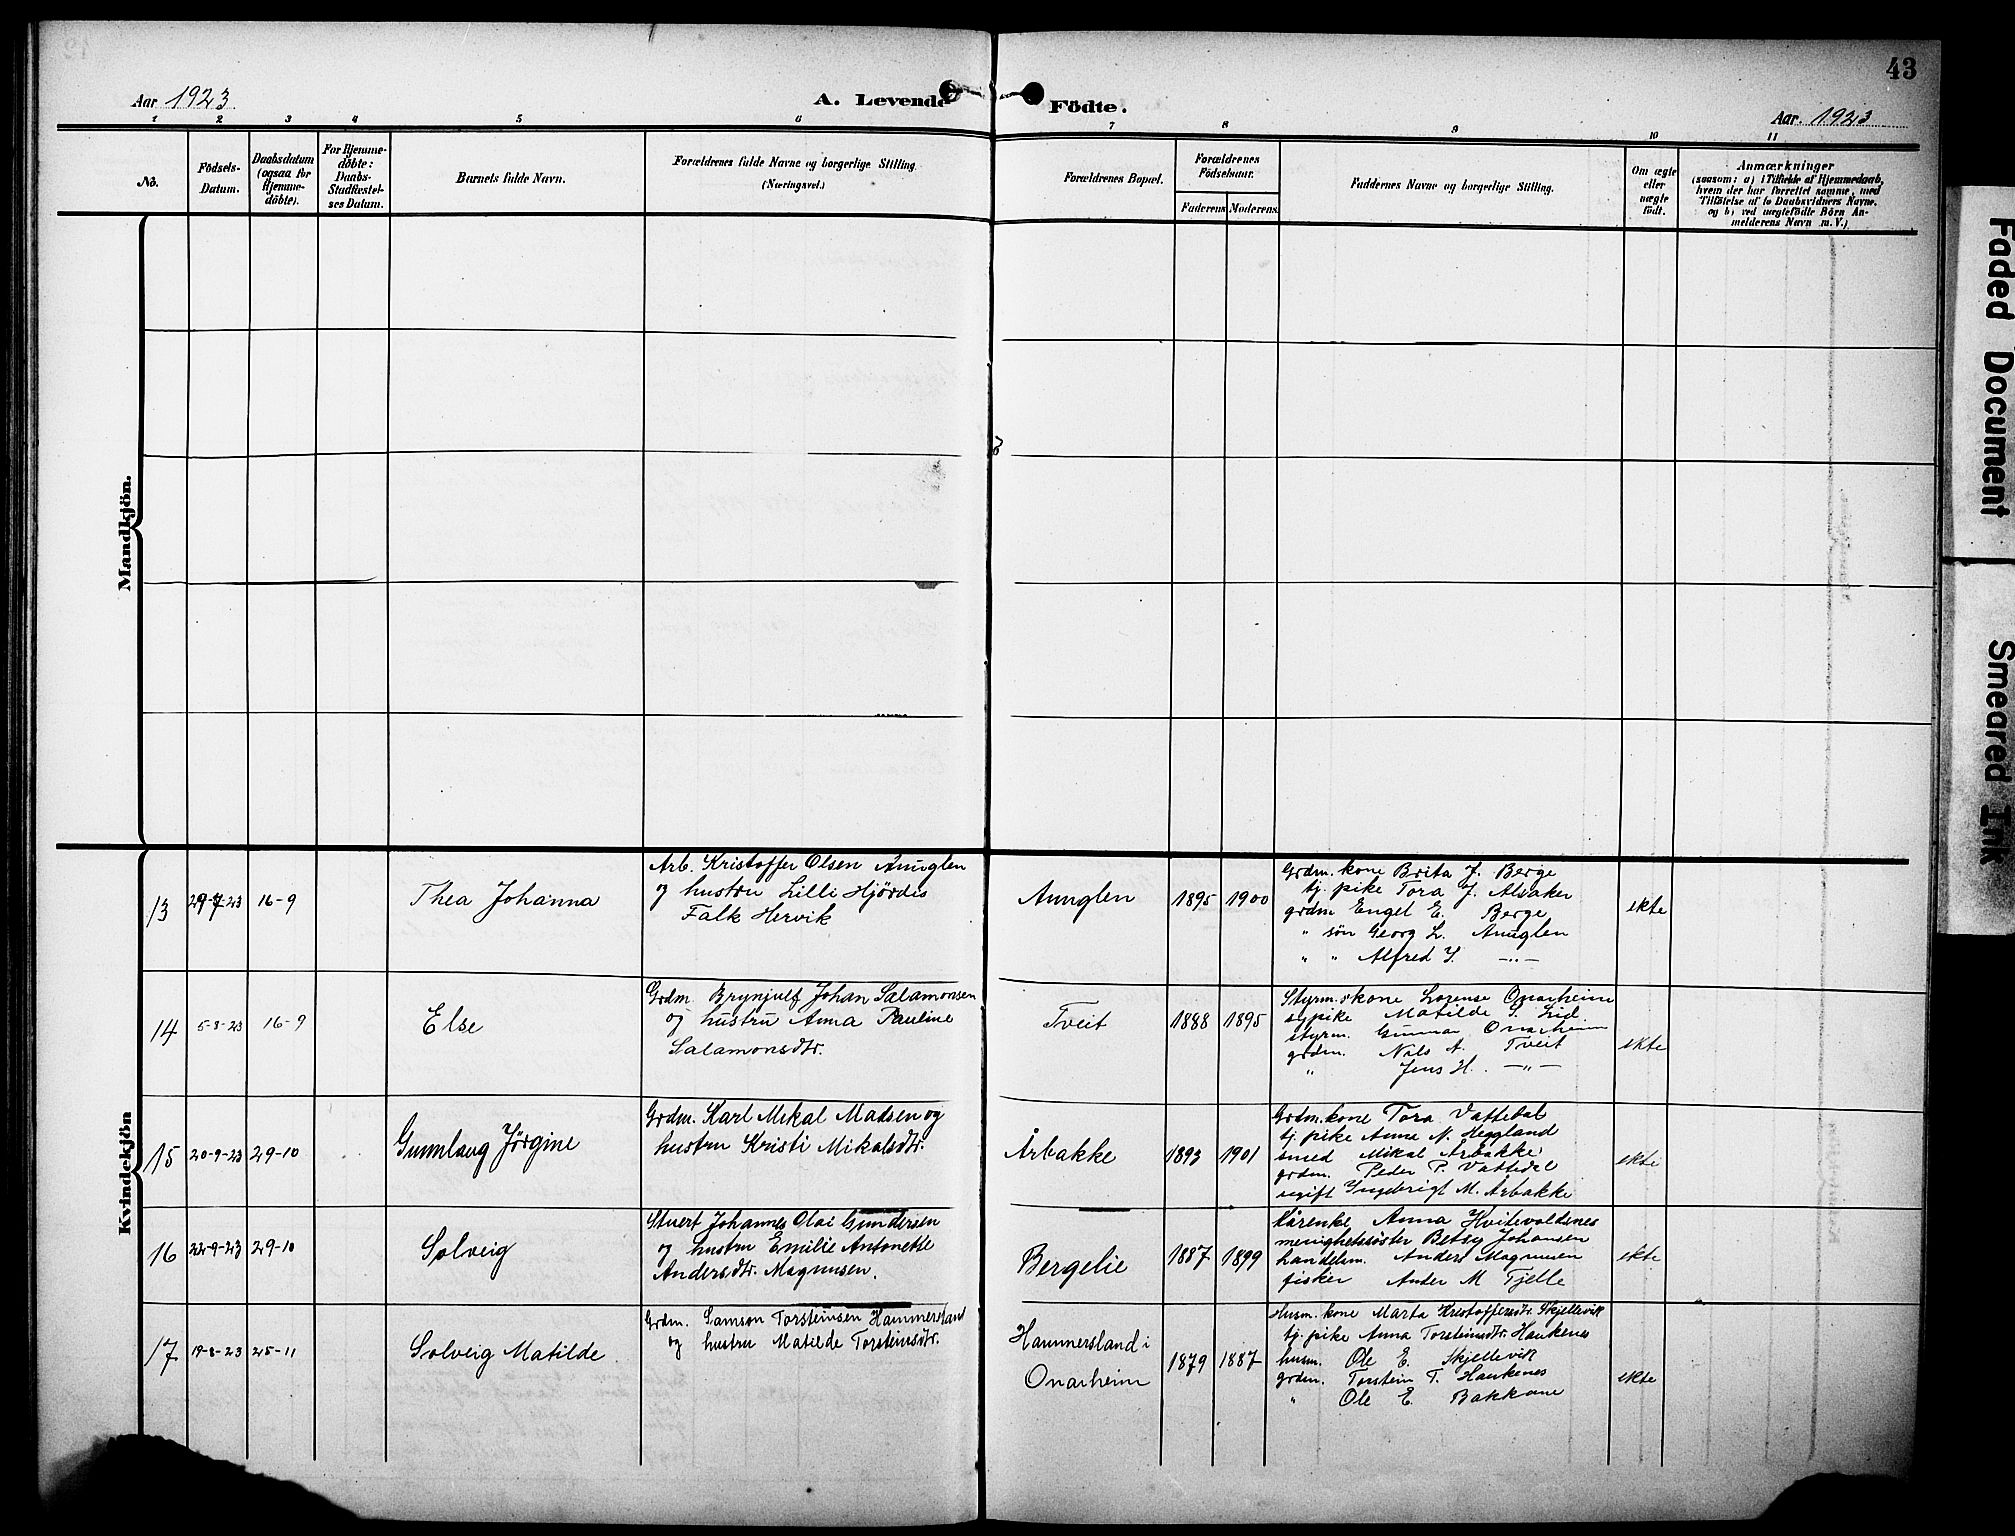 43
Aar 1923
A. Levende Födte.
Aar. 1923
1 2 3 4 5 6 7 8 9 10 11
No.
Födsels-
Datum.
Daabsdatum
(ogsaa for
Hjemme-
döbte).
For Hjemme-
döbte:
Daabs-
Stadfæstel-
ses Datum.
Barnets fulde Navn.
Forældrenes fulde Navne og borgerlige Stilling.
(Næringsvei.)
Forældrenes Bopæl.
Forældrenes
Födselsaar.
Faderens Moderens.
Faddernes Navne og borgerlige Stilling.
Om ægte
eller
uægte
födt.
Anmærkninger
(saasom: a) i Tilfælde af Hjemmedaab,
hvem der har forrettet samme, med
Tilföielse af to Daabsvidners Navne.
og b) ved uægtefödte Börn An-
melderens Navn m. V.)
Mandkjön.
Kvindekjön
13
29-7-23
16-9
Thea Johanna
Arb. Kristoffer Olsen Anuglen
og hustru Lilli Hjördis
Falk Hervik
Anuglen
1895
1900
Grdm. kone Brita J. Berge
tj. pike Tora J. Alsaker
grdm Engel E. Berge
" sön Georg L. Anuglen
" " Alfred —"—
ekte
14
5-8-23
16-9
Else
Grdm. Brynjulf Johan Salamonsen
og hustru Anna Pauline
Salamonsdtr.
Tveit
1888
1895
Styrm.skone Lorense Onarheim
sypike Matilde Lid.
styrm. Gunnar Onarheim
grdm. Nils A. Tveit
" Jens H. —"—
ekte
15
20-9-23
29-10
Gunnlaug Jørgine
Grdm. Karl Mikal Madsen og
hustru Kristi Mikalsdtr.
Årbakke
1893
1901
Grdm.kone Tora Vattedal
tj. pike Anna N. Heggland
smed Mikal Årbakke
grdm. Peder P. Vattedal
ugift Ingebrigt M. Årbakke
ekte
16
22-9-23
29-10
Solveig
Stuert Johannes Olai Gundersen
og hustru Emilie Antonette
Andersdtr. Magnusen.
Bergelie
1887
1899
Anna Hvitevoldsnes
menighetssöster Betsy Johansen
handelsm. Anders Magnusen
fisker Ander M Tjelle
ekte
17
19-8-23
25-11
Solveig Matilde
Grdm. Samson Torsteinsen Hammersland
og hustru Matilde Torsteinsdtr.
Hammersland i
Onarheim
1879
1887
Husm. kone Marta Kristoffersdtr. Skjellevik
tj. pike Anna Torsteinsdtr. Haukenes
husm. Ole E. Skjellevik
grdm. Torstein T. Haukenes
" Ole E. Bakkane
ekte
Faded Document
Smeared Ink